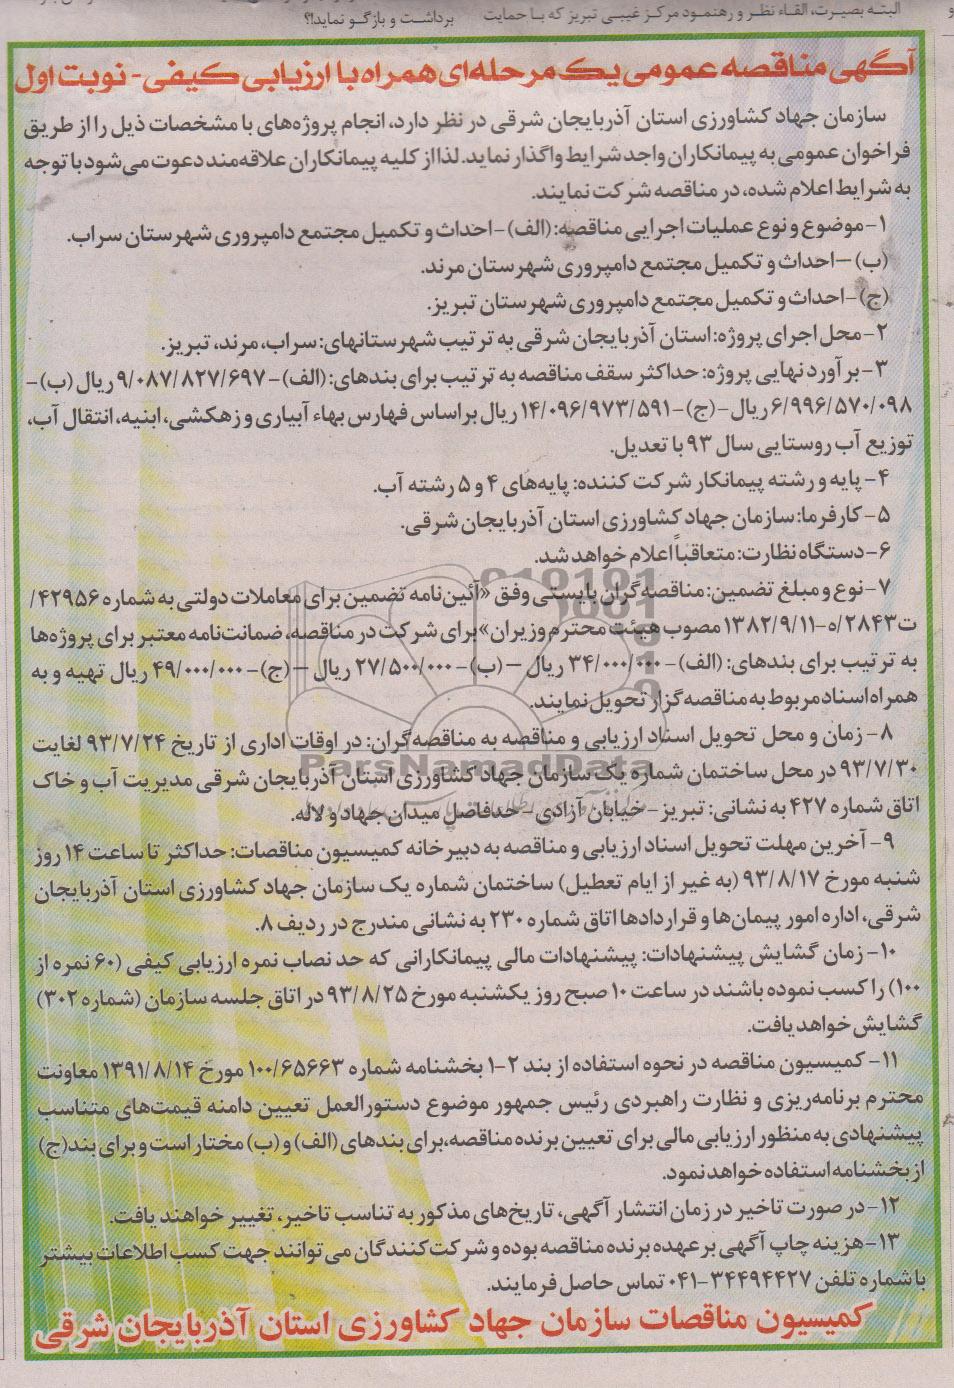 البته بصیرت، القاء نظر و رهنمود مرکز غیبی تبریز که با حمایت
برداشت و بازگو نماید!؟
آگهی مناقصه عمومی یک مرحله‌ای همراه با ارزیابی کیفی - نوبت اول
سازمان جهاد کشاورزی استان آذربایجان شرقی در نظر دارد، انجام پروژه‌های با مشخصات ذیل را از طریق
فراخوان عمومی به پیمانکاران واجد شرایط واگذار نماید. لذا از کلیه پیمانکاران علاقه‌مند دعوت می‌شود با توجه
به شرایط اعلام شده، در مناقصه شرکت نمایند.
۱- موضوع و نوع عملیات اجرایی مناقصه: (الف) - احداث و تکمیل مجتمع دامپروری شهرستان سراب.
(ب) - احداث و تکمیل مجتمع دامپروری شهرستان مرند.
(ج) - احداث و تکمیل مجتمع دامپروری شهرستان تبریز.
۲- محل اجرای پروژه: استان آذربایجان شرقی به ترتیب شهرستانهای: سراب، مرند، تبریز.
۳- برآورد نهایی پروژه: حداکثر سقف مناقصه به ترتیب برای بندهای: (الف) - ۹/۰۸۷/۸۲۷/۶۹۷ ریال (ب) -
۶/۹۹۶/۵۷۰/۰۹۸ ریال - (ج) - ۱۴/۰۹۶/۹۷۳/۵۹۱ ریال براساس فهارس بهاء آبیاری و زهکشی، ابنیه، انتقال آب،
توزیع آب روستایی سال ۹۳ با تعدیل.
۴- پایه و رشته پیمانکار شرکت کننده: پایه‌های ۴ و ۵ رشته آب.
۵- کارفرما: سازمان جهاد کشاورزی استان آذربایجان شرقی.
۶- دستگاه نظارت: متعاقباً اعلام خواهد شد.
۷- نوع و مبلغ تضمین: مناقصه‌گران بایستی وفق «آئین‌نامه تضمین برای معاملات دولتی به شماره ۴۲۹۵۶/
ت۲۸۴۳/ه-۱۳۸۲/۹/۱۱ مصوب هیئت محترم وزیران» برای شرکت در مناقصه، ضمانت‌نامه معتبر برای پروژه‌ها
به ترتیب برای بندهای: (الف) - ۳۴/۰۰۰/۰۰۰ ریال - (ب) - ۲۷/۵۰۰/۰۰۰ ریال - (ج) - ۴۹/۰۰۰/۰۰۰ ریال تهیه و به
همراه اسناد مربوط به مناقصه‌گزار تحویل نمایند.
۸- زمان و محل تحویل اسناد ارزیابی و مناقصه به مناقصه‌گران: در اوقات اداری از تاریخ ۹۳/۷/۲۴ لغایت
۹۳/۷/۳۰ در محل ساختمان شماره یک سازمان جهاد کشاورزی استان آذربایجان شرقی مدیریت آب و خاک
اتاق شماره ۴۲۷ به نشانی: تبریز - خیابان آزادی - حدفاصل میدان جهاد و لاله.
۹- آخرین مهلت تحویل اسناد ارزیابی و مناقصه به دبیرخانه کمیسیون مناقصات: حداکثر تا ساعت ۱۴ روز
شنبه مورخ ۹۳/۸/۱۷ (به غیر از ایام تعطیل) ساختمان شماره یک سازمان جهاد کشاورزی استان آذربایجان
شرقی، اداره امور پیمان‌ها و قراردادها اتاق شماره ۲۳۰ به نشانی مندرج در ردیف ۸.
۱۰- زمان گشایش پیشنهادات: پیشنهادات مالی پیمانکارانی که حد نصاب نمره ارزیابی کیفی (۶۰ نمره از
۱۰۰) را کسب نموده باشند در ساعت ۱۰ صبح روز یکشنبه مورخ ۹۳/۸/۲۵ در اتاق جلسه سازمان (شماره ۳۰۲)
گشایش خواهد یافت.
۱۱- کمیسیون مناقصه در نحوه استفاده از بند ۲-۱ بخشنامه شماره ۱۰۰/۶۵۶۶۳ مورخ ۱۳۹۱/۸/۱۴ معاونت
محترم برنامه‌ریزی و نظارت راهبردی رئیس جمهور موضوع دستورالعمل تعیین دامنه قیمت‌های متناسب
پیشنهادی به منظور ارزیابی مالی برای تعیین برنده مناقصه، برای بندهای (الف) و (ب) مختار است و برای بند (ج)
از بخشنامه استفاده خواهد نمود.
۱۲- در صورت تاخیر در زمان انتشار آگهی، تاریخ‌های مذکور به تناسب تاخیر، تغییر خواهند یافت.
۱۳- هزینه چاپ آگهی برعهده برنده مناقصه بوده و شرکت کنندگان می‌توانند جهت کسب اطلاعات بیشتر
با شماره تلفن ۳۴۴۹۴۴۲۷-۰۴۱ تماس حاصل فرمایند.
کمیسیون مناقصات سازمان جهاد کشاورزی استان آذربایجان شرقی
ParsNamadData